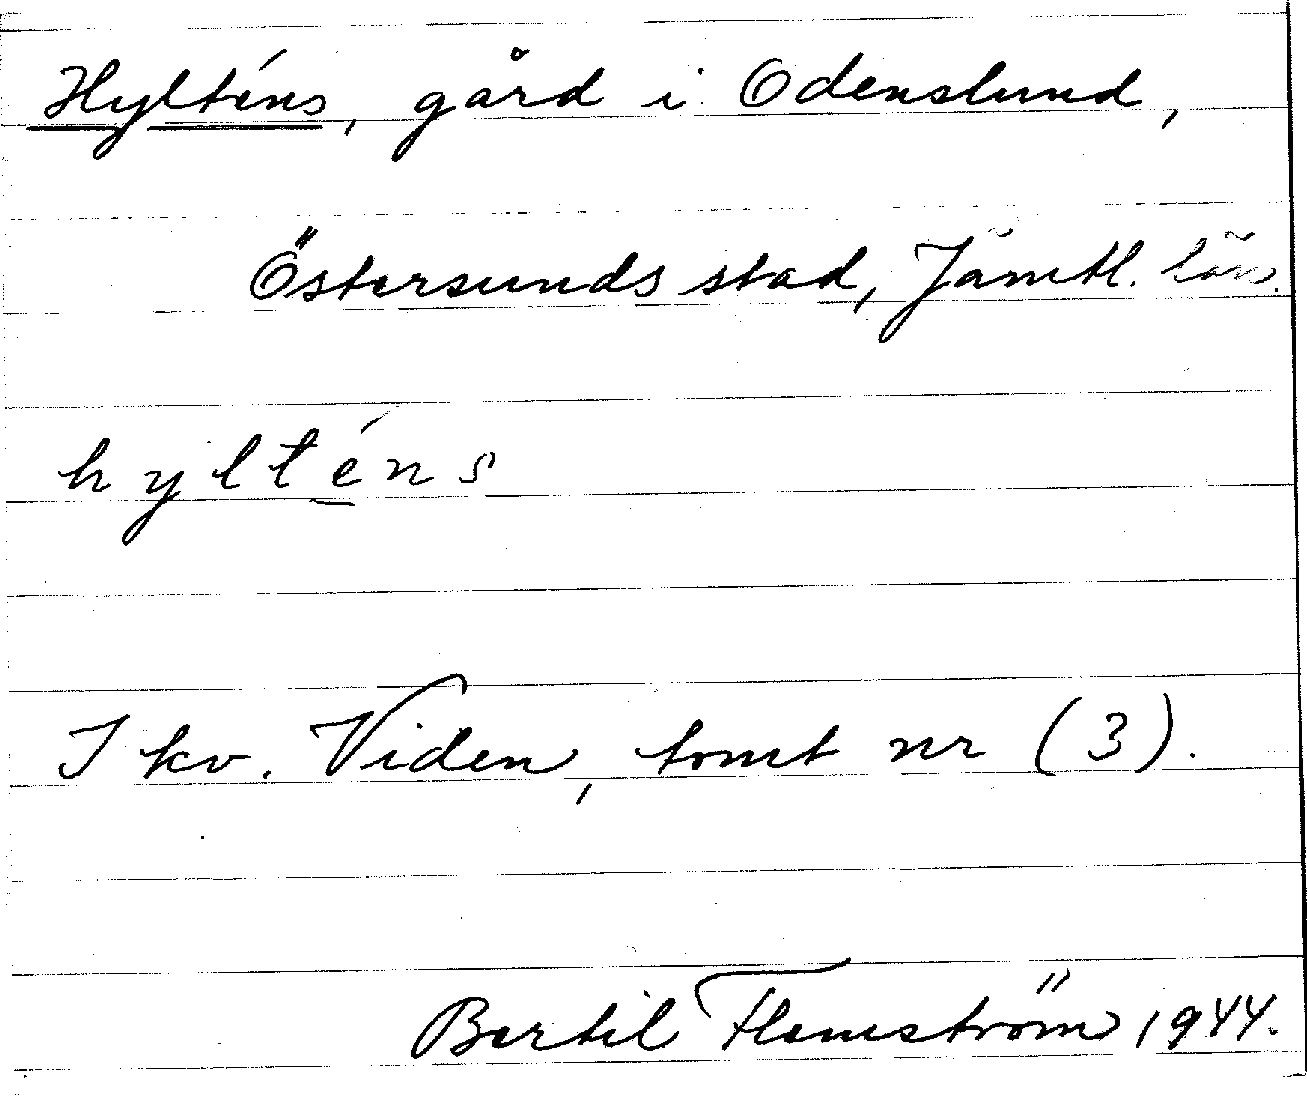 Hylténs, gård i Odenslund,
Östersunds stad, Jämtl. län.
hylténs
I kv. Viden, tomt nr (3).
Bertil Flemström 1944.